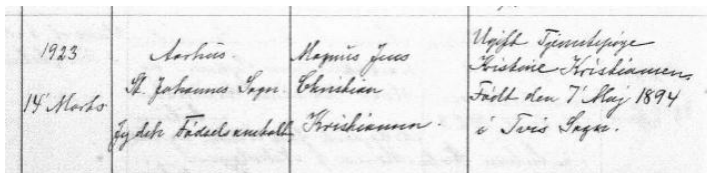 1923
14' Marts
Aarhus.
St. Johannes Sogn.
Jydsk Fødselsanstalt
Magnus Jens
Christian
Kristiansen.
Ugift Tjenestepige
Kristine Kristiansen,
Født den 7' Maj 1894
i Tvis Sogn.